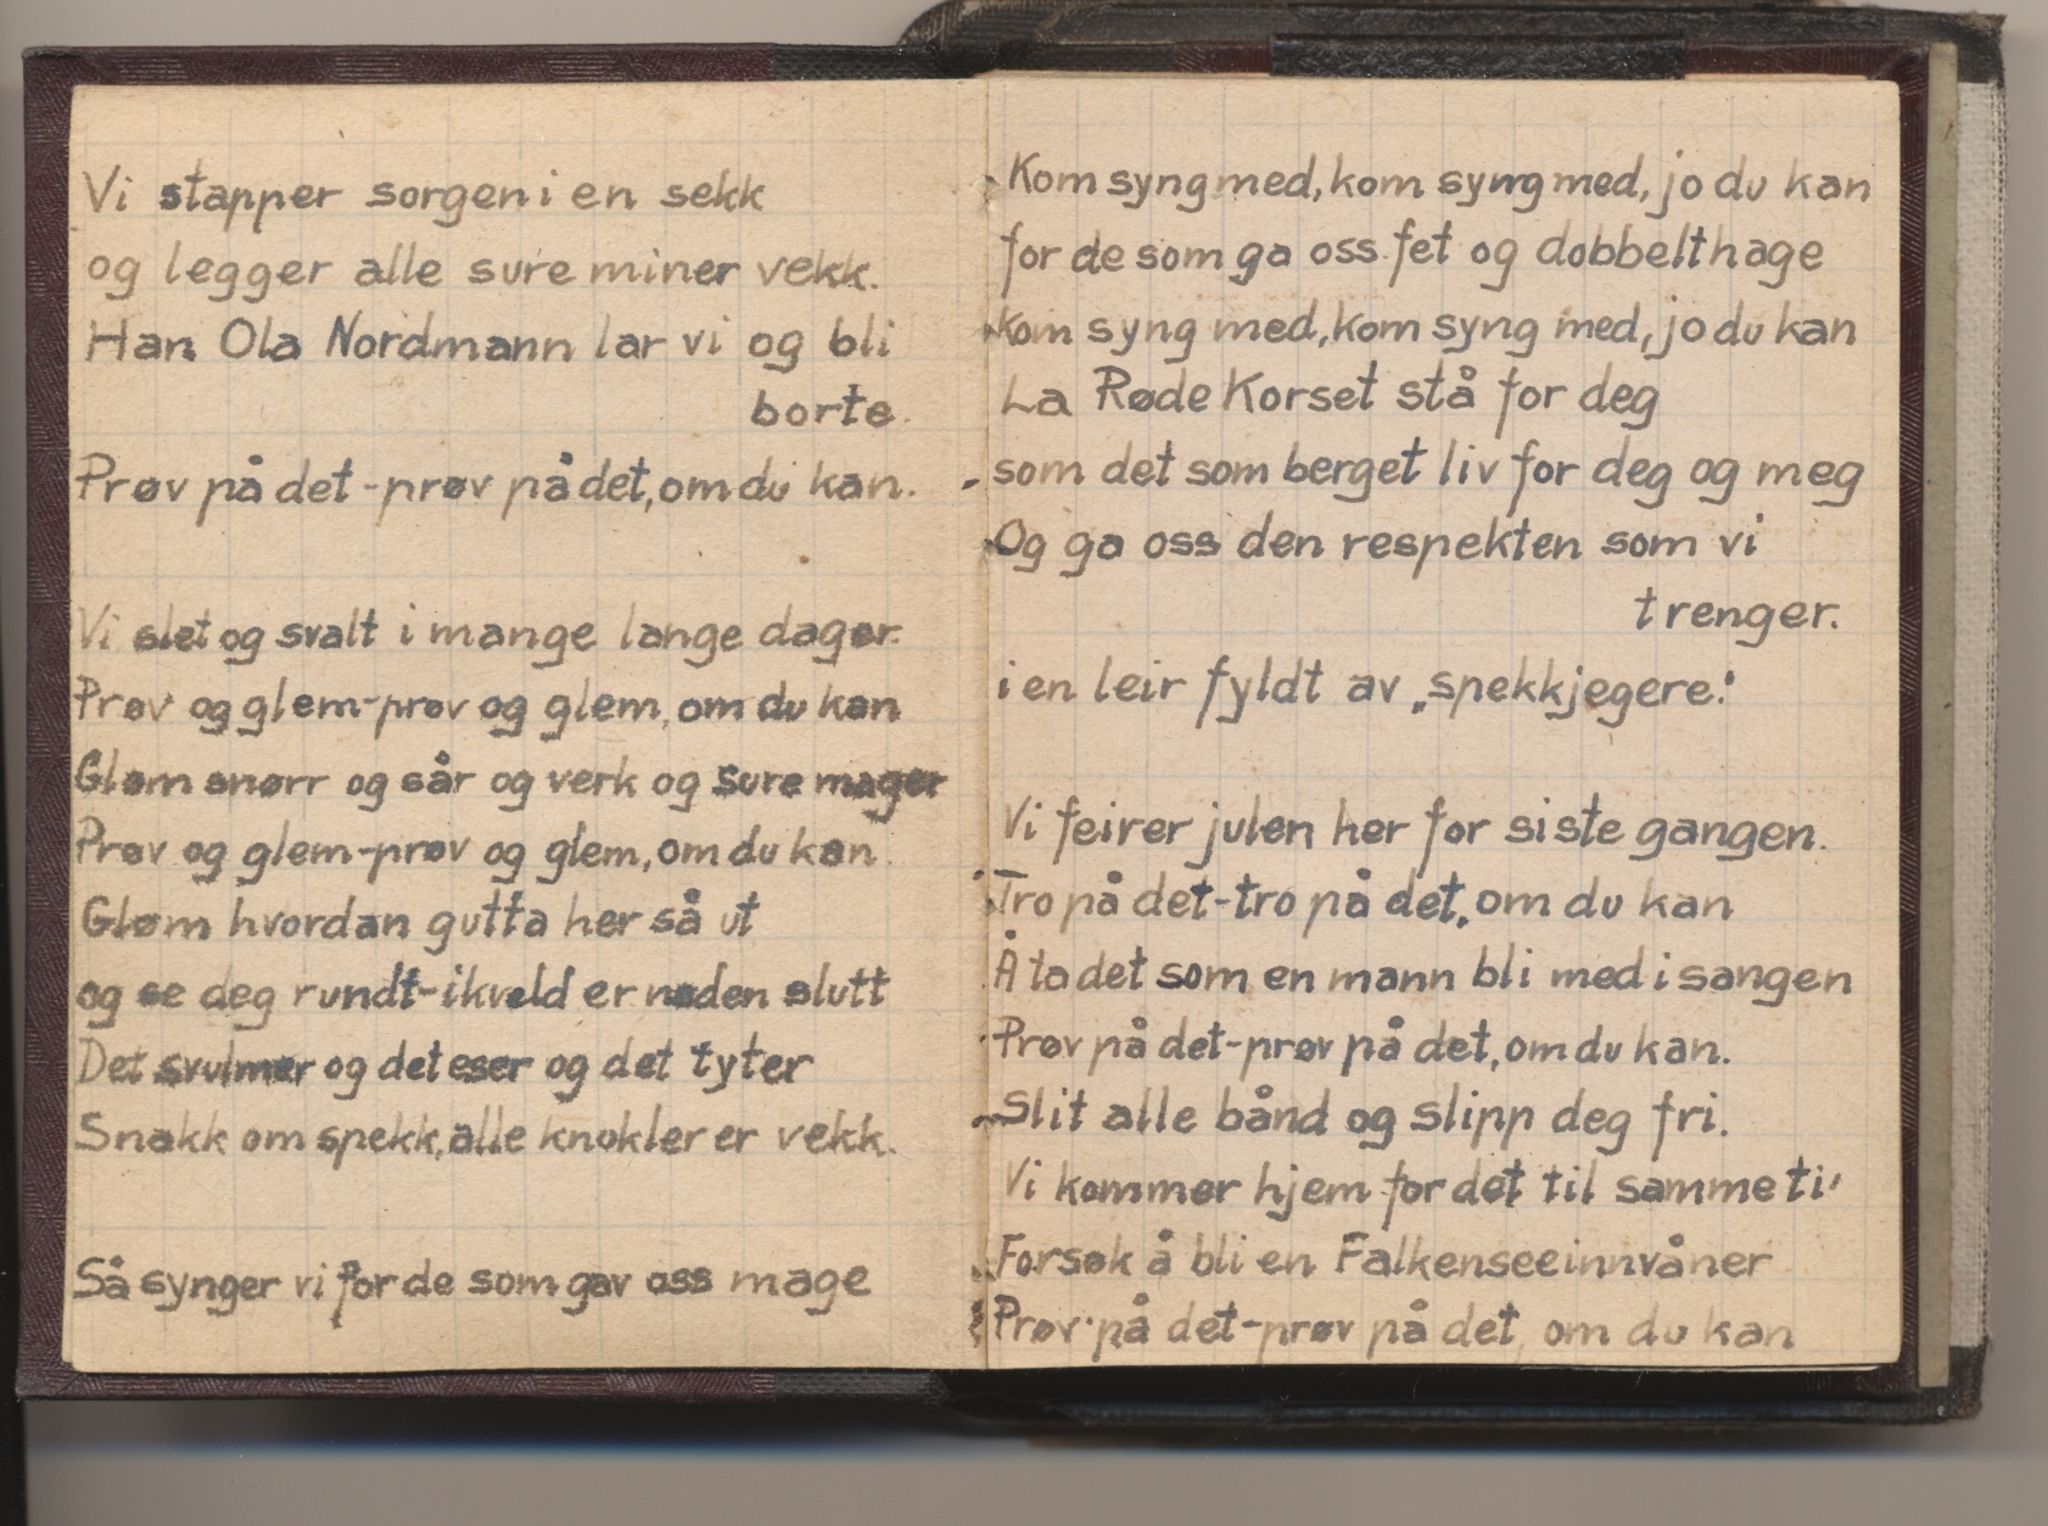 Vi stapper sorgen i en sekk
og legger alle sure miner vekk.
Han Ola Nordmann lar vi og bli
borte.
Prøv på det - prøv på det, om du kan.
Vi slet og svalt i mange lange dager.
Prøv og glem - prøv og glem, om du kan
Gløm snørr og sår og verk og sure mager
Prøv og glem - prøv og glem, om du kan.
Gløm hvordan gutta her så ut
og se deg rundt - ikveld er nøden slutt
Det svulmer og det eser og det tyter
Snakk om spekk, alle knokler er vekk.
Så synger vi for de som gav oss mage
Kom syng med, kom syng med, jo du kan
for de som ga oss fet og dobbelthage
Kom syng med, kom syng med, jo du kan
La Røde Korset stå for deg
som det som berget liv for deg og meg
Og ga oss den respekten som vi
trenger.
i en leir fyldt av „spekkjegere."
Vi feirer julen her for siste gangen.
Tro på det - tro på det, om du kan
Å ta det som en mann bli med i sangen
Prøv på det - prøv på det, om du kan.
Slit alle bånd og slipp deg fri.
Vi kommer hjem for det til samme ti'
Forsøk å bli en Falkenseeinnvåner
Prøv på det - prøv på det, om du kan